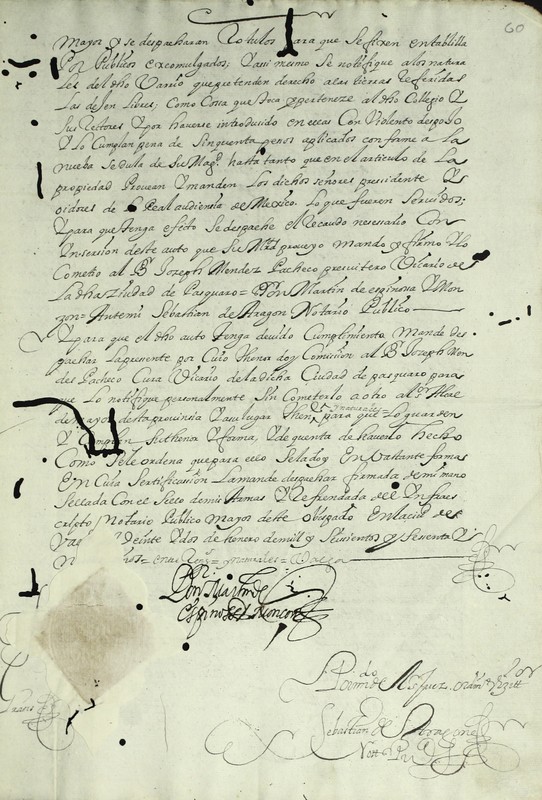 60
Mayor y se despacharan Rotulos para que se fixen en tablilla
Por Publicos excomulgados; Y assi mesmo se notifique a los natura
les del dho Varrio que pretenden derecho a las tierras referidas
Las dejen libres; Como Cossa que toca y perteneze al dho Collegio Y
Sus Rectores Y por haverse introducido en ellas Con Violento despojo
Y lo Cumplan pena de Sinquenta pesos aplicados conforme a la
nueba Sedula de Su Magd. hasta tanto que en el articulo de La
propiedad Provean Y manden Los dichos señores pressidente Y
oidores de la Real audiencia de Mexico. Lo que fueren Servidos;
Y para que tenga efecto Se despache el Recaudo nesessario Con
Ynsersion deste auto que Su Mrd proveyo mando y firmo Y lo
Cometio al Br Joseph Mendez Pacheco presvitero Vicario de
La dha Ziudad de Pasquaro = Don Martin de espinosa Y Mon
zon = Antemi Sebastian de Aragon Notario Publico
Y para que el dho auto tenga devido Cumplimiento Mande des
pachar la presente por Cuio thenor doy Comission al Br Joseph Men
des Pacheco Cura Vicario de la dicha Ciudad de pasquaro para
que Lo notifique personalmente Sin Cometerlo a otro al Sr. Alcal
de mayor desta provinsia Y a su lugar then.te y naturales para que lo guarden
Y Cumplan Su thenor Y forma, Y de quenta de haverlo hecho
Como Se le ordena que para ello Se la doy En vastante forma
En Cuia Sertificassion La mande despachar firmada de mi mano
Sellada Con el Sello de mis Armas Y Refrendada del Ynfraes
cripto Notario Publico Mayor deste Obispado En la Ciud de
Vallid Veinte Y dos de henero de mill y Seisientos y Setenta Y
= y naturales = Valga
Don Martin de
Espinosa Monzon
Por mdo de
Sebastian de Aragon
Nott Puco